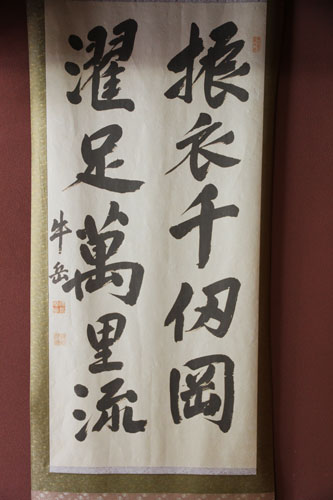 振衣千仭岡
濯足萬里流
牛岳